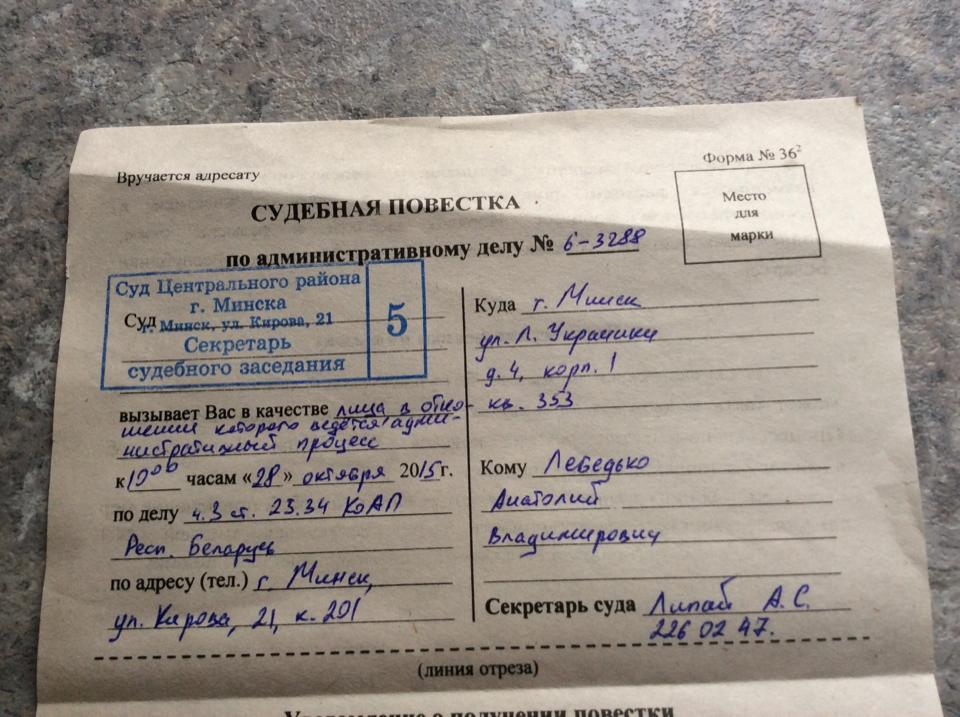 Вручается адресату
Форма № 36²
СУДЕБНАЯ ПОВЕСТКА
по административному делу № 6-3288
Место
для
марки
Суд Центрального района
г. Минска
Суд г. Минск, ул. Кирова, 21
Секретарь
судебного заседания
5
вызывает Вас в качестве лица в отно-
шении которого ведётся адми-
нистративный процесс
к 10⁰⁰ часам «28» октября 2015 г.
по делу ч.3 ст. 23.34 КоАП
Респ. Беларусь
по адресу (тел.) г. Минск,
ул. Кирова, 21, к. 201
Куда г. Минск
ул. Л. Украинки
д. 4, корп. 1
кв. 353
Кому Лебедько
Анатолий
Владимирович
Секретарь суда Липай А.С.
226 02 47.
(линия отреза)
Уведомление о получении повестки